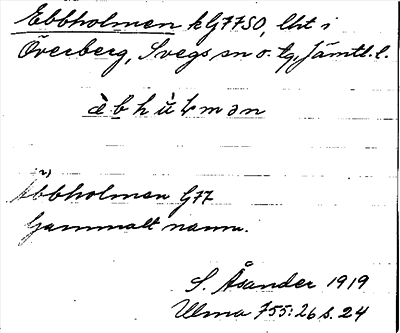 Ebbholmen kG77SO, lht i
Överberg, Svegs sn o. tg, Jämtl. l.
ä̀bhùɫmən
2)
Ebbholmen G77
Gammalt namn.
S. Åsander 1919
Ulma 755:26 s. 24